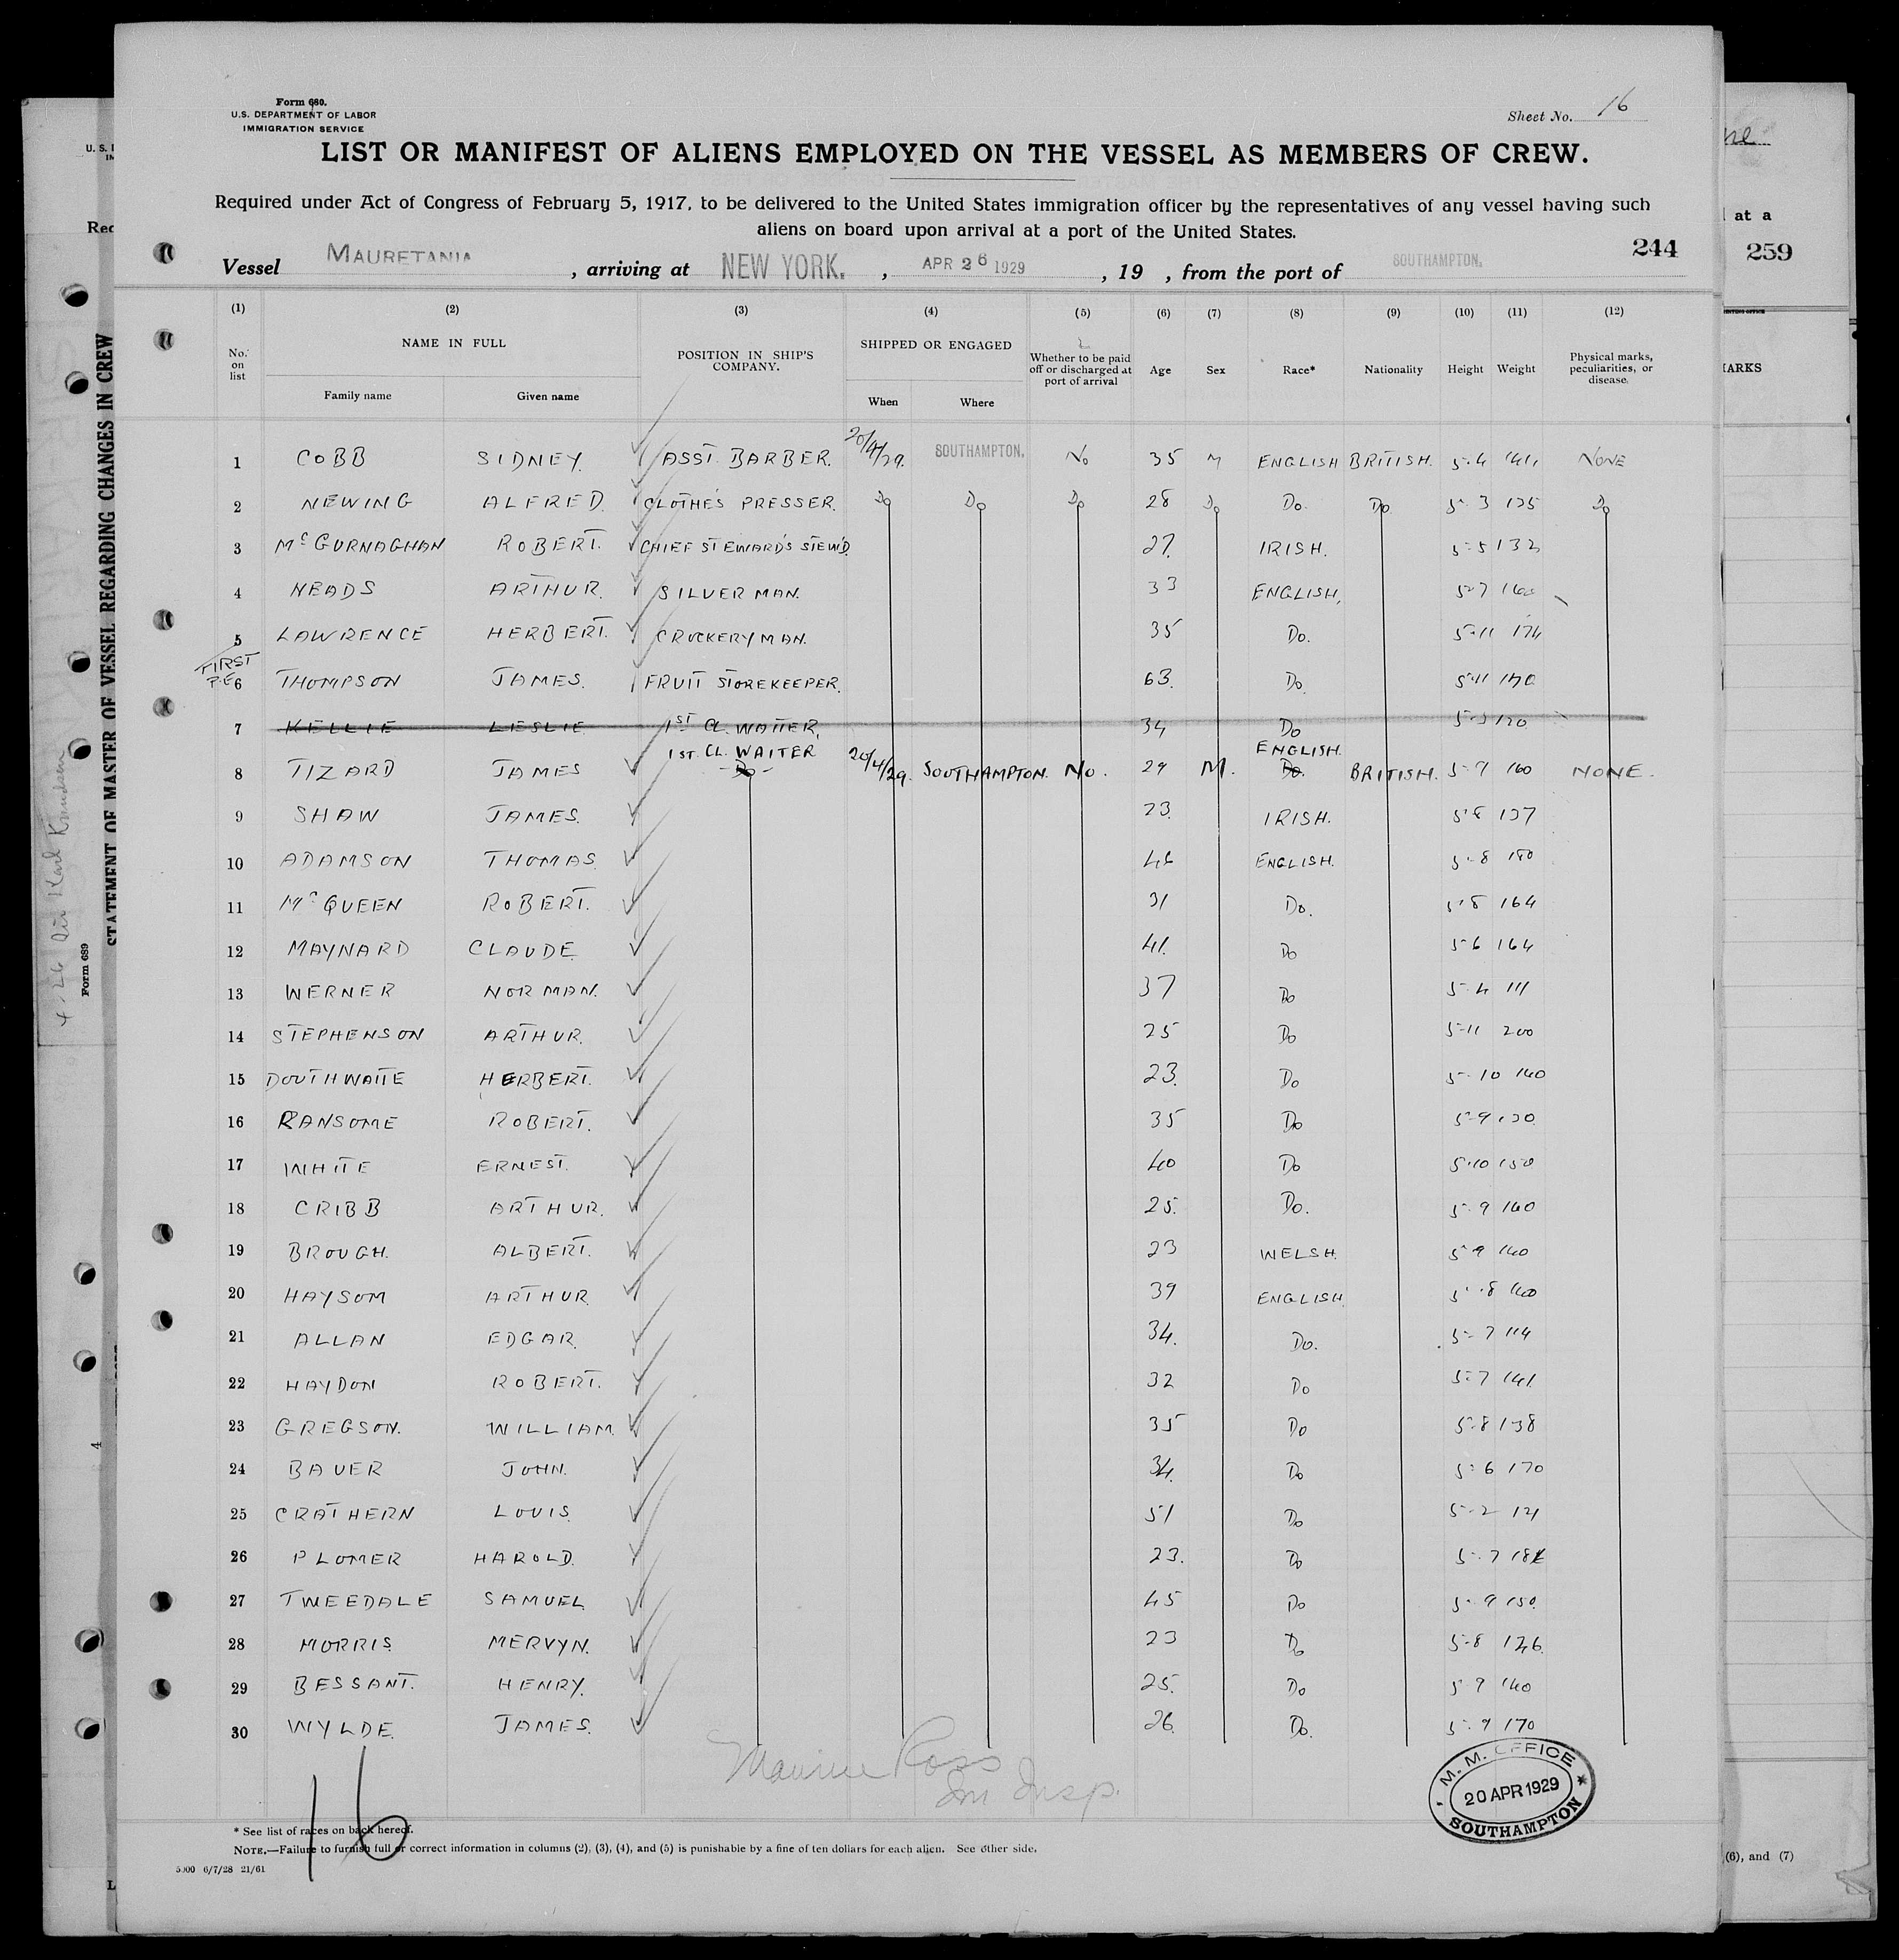 Form 680.
U.S. DEPARTMENT OF LABOR
IMMIGRATION SERVICE
Sheet No. 16
LIST OR MANIFEST OF ALIENS EMPLOYED ON THE VESSEL AS MEMBERS OF CREW.
Required under Act of Congress of February 5, 1917, to be delivered to the United States immigration officer by the representatives of any vessel having such
aliens on board upon arrival at a port of the United States.
244
Vessel MAURETANIA , arriving at NEW YORK. , APR 26 1929 , 19 , from the port of SOUTHAMPTON.
(1) (2) (3) (4) (5) (6) (7) (8) (9) (10) (11) (12)
No. on list NAME IN FULL Family name Given name POSITION IN SHIP'S COMPANY. SHIPPED OR ENGAGED When Where Whether to be paid off or discharged at port of arrival Age Sex Race* Nationality Height Weight Physical marks, peculiarities, or disease.
1 COBB SIDNEY. ASST. BARBER. 20/4/29. SOUTHAMPTON. No 35 M ENGLISH BRITISH. 5-4 141 NONE
2 NEWING ALFRED. CLOTHES PRESSER. Do Do Do 28 Do Do. Do 5-3 135 Do
3 McGURNAGHAN ROBERT. CHIEF STEWARD'S STEW'D. 27. IRISH. 5-5 132
4 NEADS ARTHUR. SILVERMAN. 33 ENGLISH. 5-7 160
5 LAWRENCE HERBERT. CROCKERYMAN. 35 Do. 5-11 174
FIRST
6 THOMPSON JAMES. FRUIT STOREKEEPER. 63. Do. 5-11 170
7 KELLIE LESLIE 1ST CL. WAITER. 34 Do 120
1ST. CL. WAITER ENGLISH.
8 TIZARD JAMES Do 20/4/29. SOUTHAMPTON. No. 29 M. Do. BRITISH. 5-7 160 NONE.
9 SHAW JAMES. 23. IRISH. 137
10 ADAMSON THOMAS. 46 ENGLISH. 5-8 180
11 McQUEEN ROBERT. 31 Do. 5-8 164
12 MAYNARD CLAUDE. 41. Do 5-6 164
13 WERNER NORMAN. 37 Do 5-4 111
14 STEPHENSON ARTHUR. 25 Do 5-11 200
15 DOUTHWAITE HERBERT. 23. Do 5-10 140
16 RANSOME ROBERT. 35 Do 5-9 130
17 WHITE ERNEST. 40 Do 5-10 150
18 CRIBB ARTHUR. 25. Do. 5-9 140
19 BROUGH. ALBERT. 23 WELSH. 5-9 140
20 HAYSOM ARTHUR. 39 ENGLISH. 5-8 140
21 ALLAN EDGAR. 34. Do. 5-7 114
22 HAYDON ROBERT. 32 Do 5-7 141
23 GREGSON. WILLIAM. 35 Do 5-8 138
24 BAUER JOHN. 34. Do 5-6 170
25 CRATHERN LOUIS. 51 Do 5-2 121
26 PLOMER HAROLD. 23. Do 5-7
27 TWEEDALE SAMUEL 45 Do 5-9 150
28 MORRIS MERVYN. 23 Do 5-8 126
29 BESSANT. HENRY. 25. Do 5-9 140
30 WYLDE. JAMES. 26. Do. 5-9 170
Maurice Ross
Im Insp.
M. M. OFFICE
20 APR 1929
SOUTHAMPTON
16
* See list of races on back hereof.
NOTE.—Failure to furnish full or correct information in columns (2), (3), (4), and (5) is punishable by a fine of ten dollars for each alien. See other side.
5000 6/7/28 21/61
STATEMENT OF MASTER OF VESSEL REGARDING CHANGES IN CREW
Form 689
at a
259
(6), and (7)